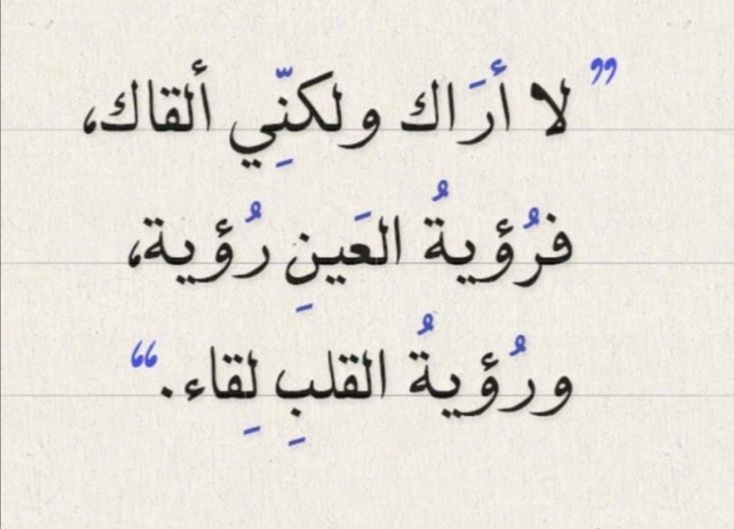 ”لا أرَاك ولكنِّي ألقاك،
فرُؤيةُ العَينِ رُؤية،
ورُؤيةُ القلبِ لِقاء.“